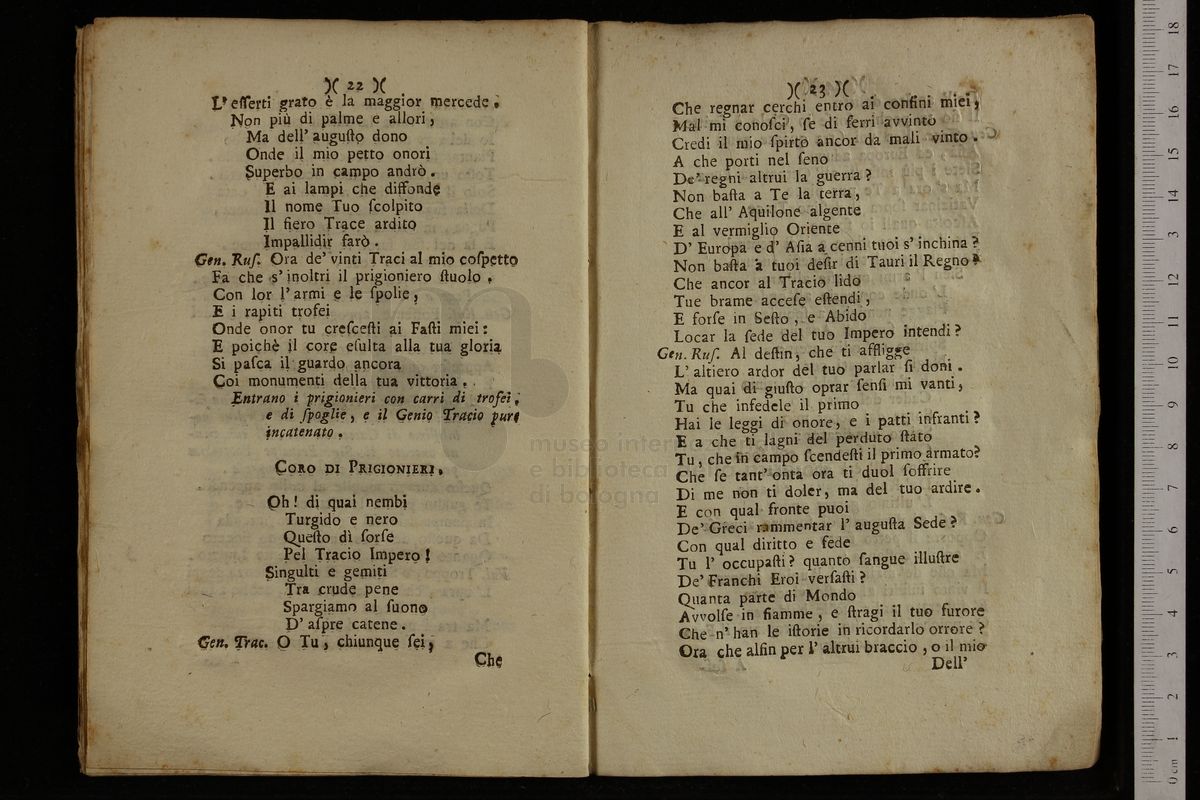 )( 22 )(
L'eſſerti grato è la maggior mercede.
Non più di palme e allori,
Ma dell' auguſto dono
Onde il mio petto onori
Superbo in campo andrò.
E ai lampi che diffonde
Il nome Tuo ſcolpito
Il fiero Trace ardito
Impallidir farò.
Gen. Ruſ. Ora de' vinti Traci al mio coſpetto
Fa che s' inoltri il prigioniero ſtuolo.
Con lor l' armi e le ſpolie,
E i rapiti trofei
Onde onor tu creſceſti ai Faſti miei:
E poichè il core eſulta alla tua gloria
Si paſca il guardo ancora
Coi monumenti della tua vittoria.
Entrano i prigionieri con carri di trofei,
e di ſpoglie, e il Genio Tracio pure
incatenato.
CORO DI PRIGIONIERI.
Oh! di quai nembi
Turgido e nero
Queſto dì ſorſe
Pel Tracio Impero!
Singulti e gemiti
Tra crude pene
Spargiamo al ſuono
D' aſpre catene.
Gen. Trac. O Tu, chiunque ſei,
Che
)( 23 )(
Che regnar cerchi entro ai confini miei,
Mal mi conoſci, ſe di ferri avvinto
Credi il mio ſpirto ancor da mali vinto.
A che porti nel ſeno
De' regni altrui la guerra?
Non baſta a Te la terra,
Che all' Aquilone algente
E al vermiglio Oriente
D' Europa e d' Aſia a cenni tuoi s' inchina?
Non baſta a tuoi deſir di Tauri il Regno?
Che ancor al Tracio lido
Tue brame acceſe eſtendi,
E forſe in Seſto, e Abido
Locar la ſede del tuo Impero intendi?
Gen. Ruſ. Al deſtin, che ti affligge
L' altiero ardor del tuo parlar ſi doni.
Ma quai di giuſto oprar ſenſi mi vanti,
Tu che infedele il primo
Hai le leggi di onore, e i patti infranti?
E a che ti lagni del perduto ſtato
Tu, che in campo ſcendeſti il primo armato?
Che ſe tant' onta ora ti duol ſoffrire
Di me non ti doler, ma del tuo ardire.
E con qual fronte puoi
De' Greci rammentar l' auguſta Sede?
Con qual diritto e fede
Tu l' occupaſti? quanto ſangue illuſtre
De' Franchi Eroi verſaſti?
Quanta parte di Mondo
Avvolſe in fiamme, e ſtragi il tuo furore
Che n' han le iſtorie in ricordarlo orrore?
Ora che alfin per l' altrui braccio, o il mio
Dell'
museo inter
e biblioteca
di bologna
0cm 1 2 3 4 5 6 7 8 9 10 11 12 13 14 15 16 17 18